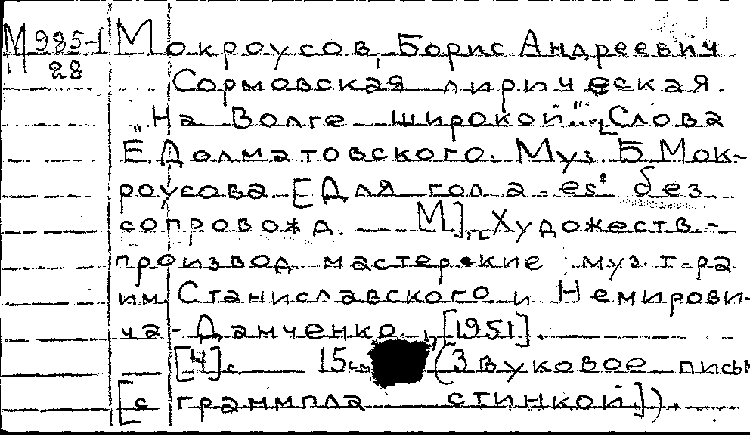 М 985-1 Мокроусов, Борис Андреевич
28
Сормовская лирическая.
"На Волге широкой..." Слова
Е. Долматовского. Муз. Б. Мок-
роусова. [Для гол. а - es² без
сопровожд. М], Художеств.-
производ. мастерские муз. т-ра
им. Станиславского и Немирови-
ча-Данченко, [1951].
[4] с. 15 см (Звуковое письм
[с граммпла стинкой]).